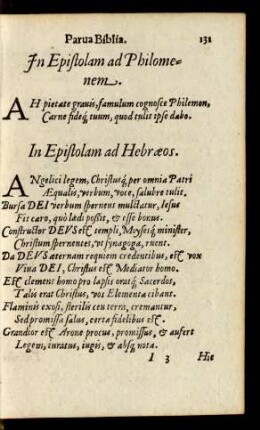 Parua Biblia. 131
In Epistolam ad Philome-
nem.
AH pietate grauis, famulum cognosce Philemon,
Carne fideq́; tuum, quod tulit ipse dabo.
In Epistolam ad Hebræos.
ANgelici legem, Christusq́; per omnia Patri
Æqualis, verbum, voce, salubre tulit.
Bursa DEI verbum spernens mulctatur, Iesus
Fit caro, quò lædi possit, & esse bonus.
Constructor DEVS est templi, Moysesq́; minister,
Christum spernentes, vt synagoga, ruent.
Da DEVS æternam requiem credentibus, est vox
Viua DEI, Christus est Mediator homo.
Est clemens homo pro lapsis oratq́; Sacerdos,
Talis erat Christus, vos Elementa cibant.
Flaminis exosi, sterilis ceu terra, cremantur,
Sed promissa salus, certa fidelibus est.
Grandior est Arone procus, promissus, & aufert
Legem, iuratus, iugis, & absq́; nota.
I 3 Hic